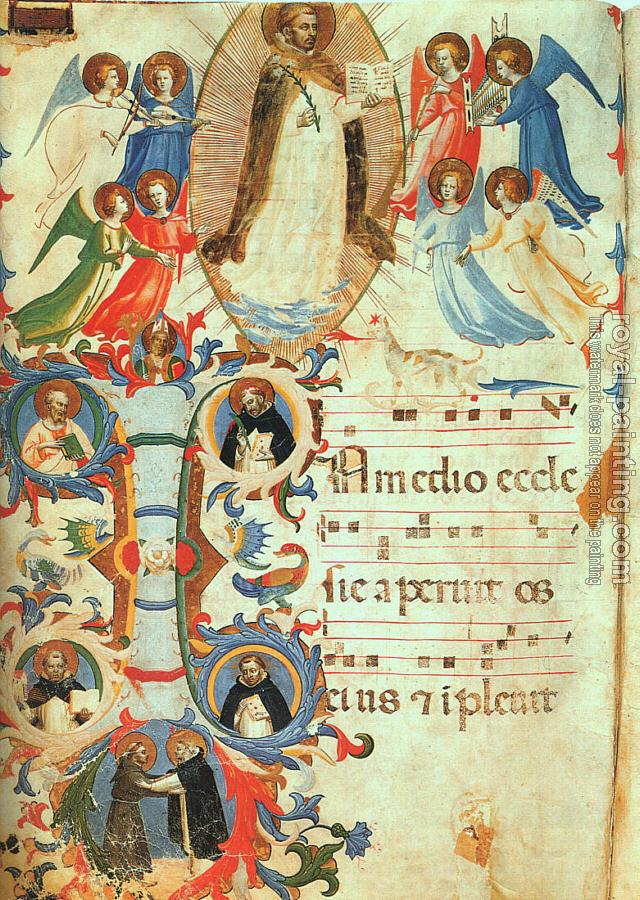 In medio eccle
sie aperuit os
eius ⁊ iplevit
royal-painting.com
This watermark does not appear on the painting